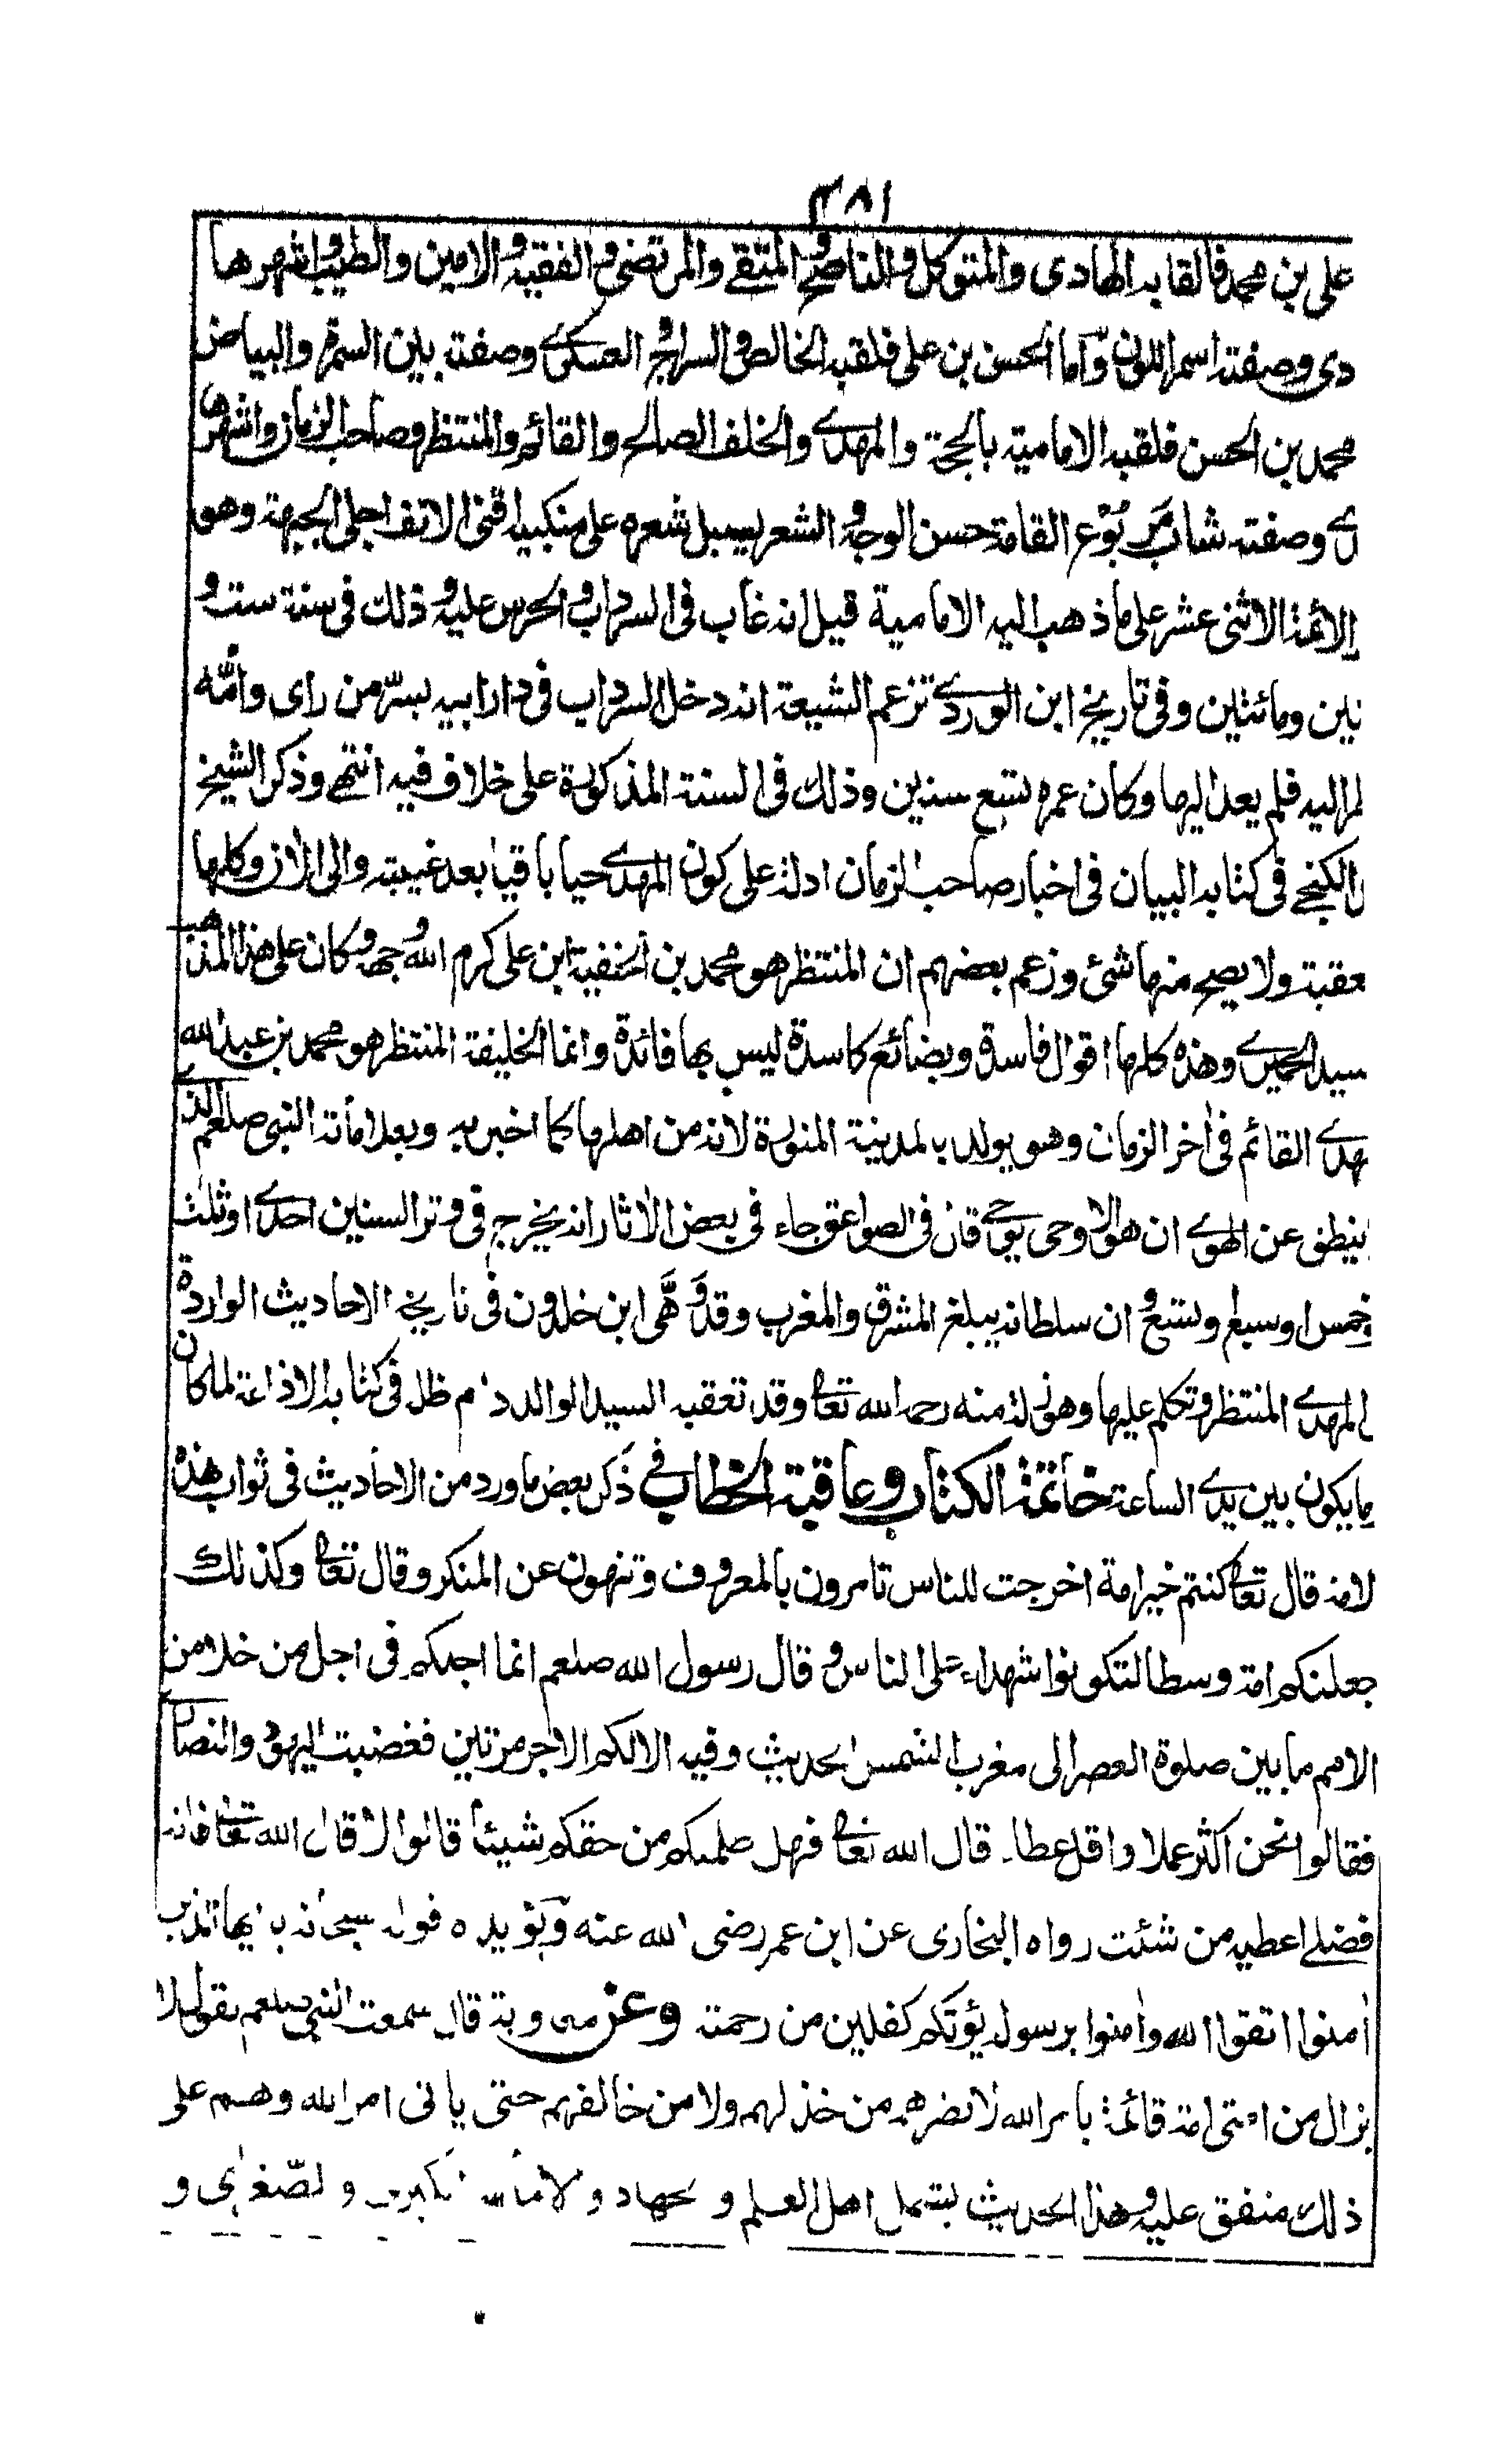 ٣٨١
على بن محمد فالقابه الهادى والمتوكل والناصح والمتقے والمرتضى والفقيه والامين والطيب واشهرها
دى وصفته اسمر اللون وأما الحسن بن على فلقبه الخالص والسراج والعسكرے وصفته بين السمرة والبياض
محمد بن الحسن فلقبه الامامية بالحجة والمهدے والخلف الصالح والقائم والمنتظر وصاحب الزمان واشهرها
ے وصفته شاب مربوع القامة حسن الوجه والشعر يسبل شعره على منكبيه اقنى الانف اجلى الجبهة وهو
الائمة الاثنى عشر على ما ذهب اليه الامامية قيل انه غاب فى السرداب والحرس عليه وذلك فى سنة ست و
تين ومائتين وفى تاريخ ابن الوردے تزعم الشيعة انه دخل السرداب فى دار ابيه بسرّ من راى وأمّه
ظر اليه فلم يعد اليها وكان عمره تسع سنين وذلك فى السنة المذكورة على خلاف فيه انتهے وذكر الشيخ
الكنجے فى كتابه البيان فى اخبار صاحب الزمان ادلة على كون المهدے حيا باقيا بعد غيبته والى الآن وكلها
عقبت ولا يصح منها شئ وزعم بعضهم ان المنتظر هو محمد بن الحنفية ابن على كرم الله وجهه وكان على هذا المذهب
سيد الحميرے وهذه كلها اقوال فاسدة وبضائع كاسدة ليس بها فائدة وانما الخليفة المنتظر هو محمد بن عبد الله
هدے القائم فى آخر الزمان وهو يولد بالمدينة المنورة لانه من اهلها كما اخبر به وبعلاماته النبى صلعم الذے
ينطق عن الهوے ان هو الا وحى يوحے قال فى الصواعق جاء فى بعض الآثار انه يخرج فى وتر السنين احدے او ثلث
خمس او سبع وتسع وان سلطانه يبلغ المشرق والمغرب وقد وَهَّى ابن خلدون فى تاريخه الاحاديث الواردة
المهدے المنتظر وتكلم عليها وهو زلة منه رحمه الله تعالى وقد تعقبه السيد الوالد دام ظله فى كتابه الاذاعة لما كان
ما يكون بين يدے الساعة خاتمة الكتاب وعاقبة الخطاب فى ذكر بعض ما ورد من الاحاديث فى ثواب هذه
لامة قال تعالى كنتم خير امة اخرجت للناس تامرون بالمعروف وتنهون عن المنكر وقال تعالى وكذلك
جعلنكم امة وسطا لتكونوا شهداء على الناس وقال رسول الله صلعم انما اجلكم فى اجل من خلا من
الامم ما بين صلوة العصر الى مغرب الشمس الحديث وفيه الا لكم الاجر مرتين فغضبت اليهود والنصارے
فقالوا نحن اكثر عملا واقل عطاء قال الله تعالى فهل ظلمتكم من حقكم شيئاً قالوا لا قال الله تعالى فانه
فضلے اعطيه من شئت رواه البخارى عن ابن عمر رضى الله عنه ويؤيده قوله سبحانه يا ايها الذين
آمنوا اتقوا الله وآمنوا برسوله يؤتكم كفلين من رحمته وعن معوية قال سمعت النبى صلعم يقول لا
يزال من امتى امة قائمة بامر الله لا يضرهم من خذلهم ولا من خالفهم حتى ياتى امر الله وهم على
ذلك متفق عليه وهذا الحديث يشمل اهل العلم و الجهاد و الامامة الكبرى و الصغرى و